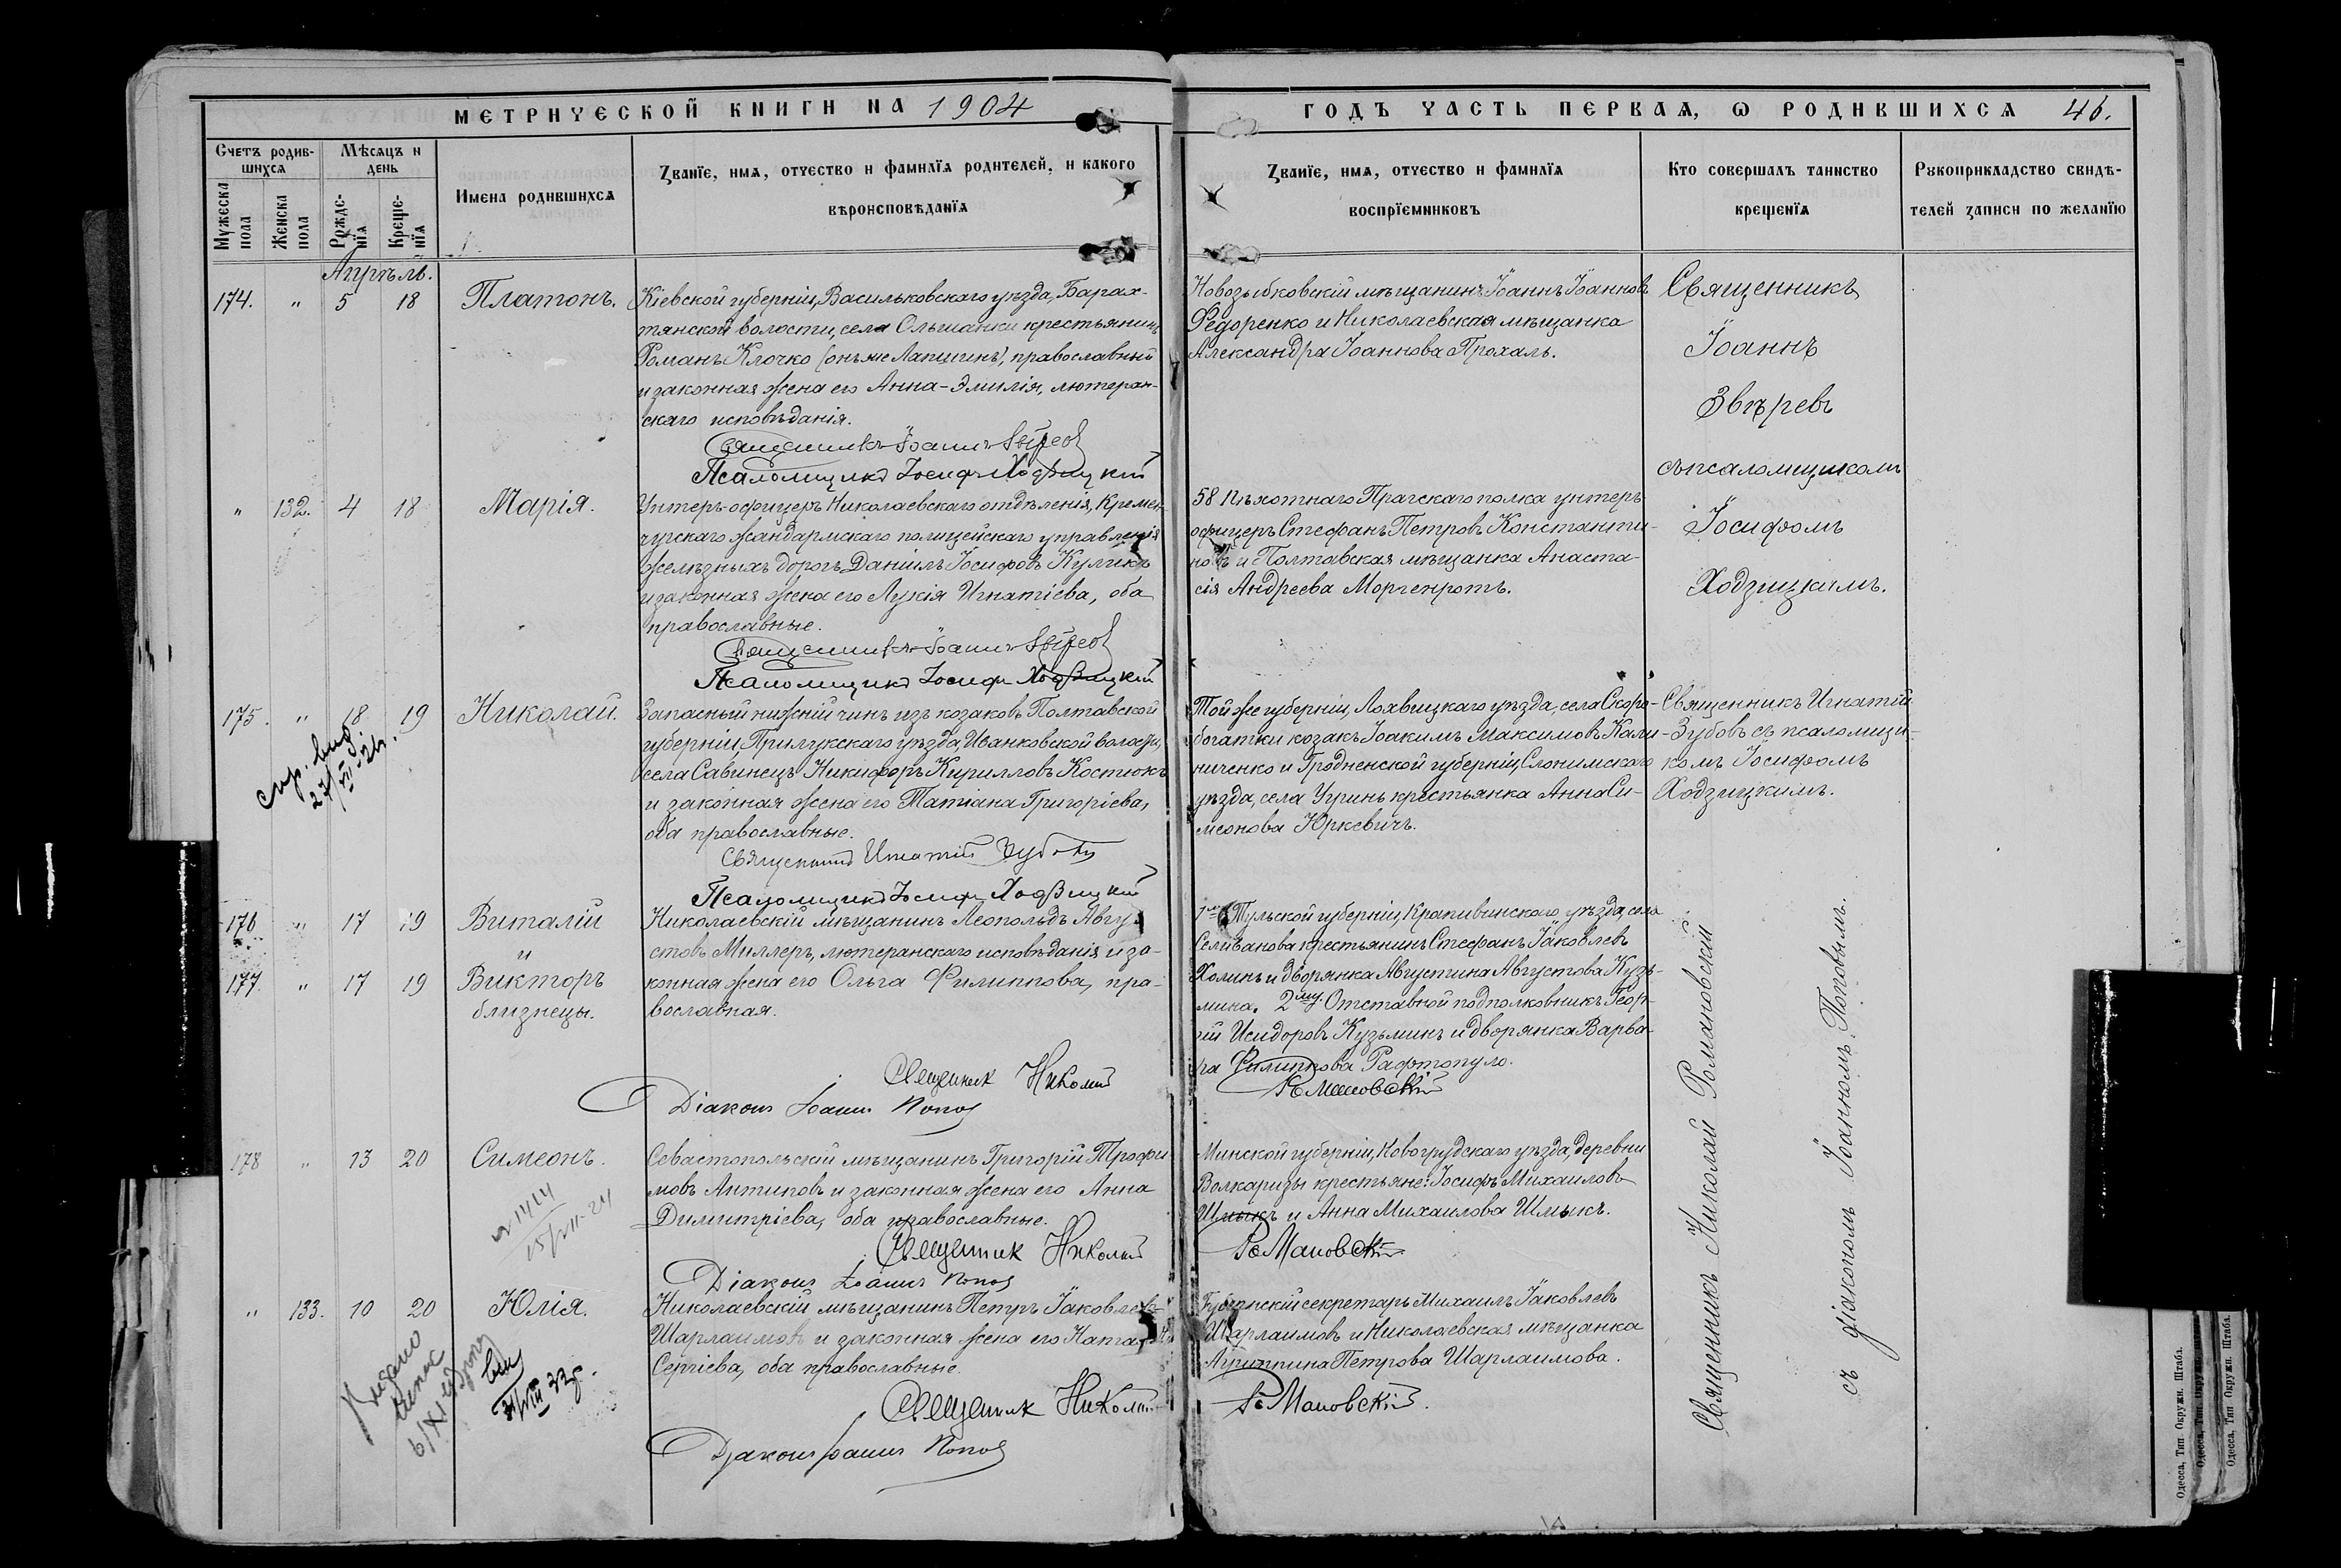 МЕТРИЧЕСКОЙ КНИГИ НА 1904
ГОДЪ ЧАСТЬ ПЕРВАѦ, Ѡ РОДИВШИХСѦ 46.
Счетъ родив-
шихсѧ
Мѣсѧцъ и
день
Мужеска
пола
Женска
пола
Рожде-
нїѧ
Креще-
нїѧ
Имена родившихсѧ
Званїе, имѧ, отчество и фамилїѧ родителей, и какого
вѣроисповѣданїѧ
Званїе, имѧ, отчество и фамилїѧ
воспрїемниковъ
Кто совершалъ таинство
крещенїѧ
Рукоприкладство свидѣ-
телей записи по желанїю
Апрѣль.
174. " 5 18 Платонъ.
Кіевской губерніи, Васильковскаго уѣзда, Барах-
тянской волости, села Ольшанки крестьянинъ
Романъ Клочко (онъ же Лапшинъ), православный
и законная жена его Анна-Эмилія, лютеран-
скаго исповѣданія.
Священникъ Іоаннъ Звѣревъ
Псаломщикъ Іосифъ Ходзицкій
Новозыбковскій мѣщанинъ Іоаннъ Іоанновъ
Федоренко и Николаевская мѣщанка
Александра Іоаннова Прохаль.
Священникъ
Іоаннъ
Звѣревъ
съ псаломщикомъ
Іосифомъ
Ходзицкимъ.
" 132. 4 18 Марія.
Унтеръ-офицеръ Николаевскаго отдѣленія, Кремен-
чугскаго жандармскаго полицейскаго управленія
желѣзныхъ дорогъ Даніилъ Іосифовъ Куликъ
и законная жена его Лукія Игнатіева, оба
православные.
Священникъ Іоаннъ Звѣревъ
Псаломщикъ Іосифъ Ходзицкій
58 Пѣхотнаго Прагскаго полка унтеръ
офицеръ Стефанъ Петровъ Константи-
новъ и Полтавская мѣщанка Анаста-
сія Андреева Моргенротъ.
175. " 18 19 Николай.
27/VII-26.
Запасный нижній чинъ изъ козаковъ Полтавской
губерніи, Прилукскаго уѣзда, Иванковской волости,
села Савинецъ Никифоръ Кирилловъ Костюкъ
и законная жена его Татіана Григоріева,
оба православные.
Священникъ Игнатій Зубовъ
Псаломщикъ Іосифъ Ходзицкій
Той же губерніи, Лохвицкаго уѣзда, села Скоро-
богатки козакъ Іоакимъ Максимовъ Кали-
ниченко и Гродненской губерніи, Слонимскаго
уѣзда, села Угринь крестьянка Анна Си-
меонова Юркевичъ.
Священникъ Игнатій
Зубовъ съ псаломщи-
комъ Іосифомъ
Ходзицкимъ.
176 " 17 19 Виталій
и
177. " 17 19 Викторъ
близнецы.
Николаевскій мѣщанинъ Леопольдъ Авгу-
стовъ Миллеръ, лютеранскаго исповѣданія и за-
конная жена его Ольга Филиппова, пра-
вославная.
Священникъ Николай Романовскій
Діаконъ Іоаннъ Поповъ
Тульской губерніи, Крапивинскаго уѣзда, села
Селиванова крестьянинъ Стефанъ Іаковлевъ
Холинъ и дворянка Августина Августова Кузь-
мина. 2му Отставной подполковникъ Геор-
гій Исидоровъ Кузьминъ и дворянка Варва-
ра Филиппова Рафтопуло.
Священникъ Николай Романовскій
съ діакономъ Іоанномъ Поповымъ.
178 " 13 20 Симеонъ.
Севастопольскій мѣщанинъ Григорій Трофи
мовъ Антиповъ и законная жена его Анна
Димитріева, оба православные.
Священникъ Николай Романовскій
Діаконъ Іоаннъ Поповъ
Минской губерніи, Новогрудскаго уѣзда, деревни
Волкаризы крестьяне: Іосифъ Михаиловъ
Шмыкъ и Анна Михаилова Шмыкъ.
" 133. 10 20 Юлія.
Николаевскій мѣщанинъ Петръ Іаковлевъ
Шарлаимовъ и законная жена его Наталія
Сергіева, оба православные.
Священникъ Николай Романовскій.
Діаконъ Іоаннъ Поповъ
Губернскій секретарь Михаилъ Іаковлевъ
Шарлаимовъ и Николаевская мѣщанка
Агриппина Петрова Шарлаимова.
Одесса, Тип. Окружн. Штаба.
Одесса, Тип. Окружн. Штаба.